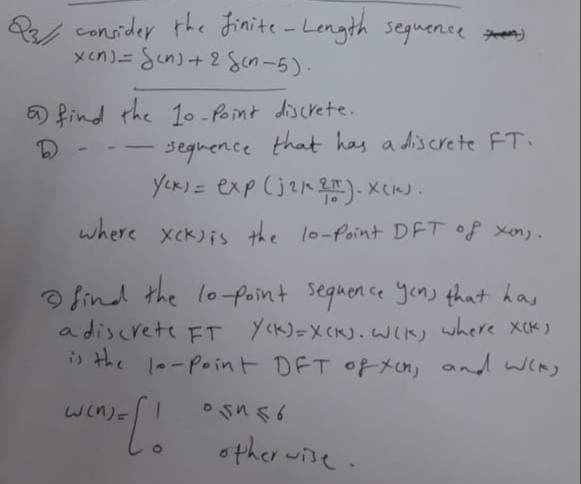 Q3// consider the finite-Length sequence
x(n)= δ(n)+2 δ(n-5).
a) find the 10-Point discrete.
b) - - — sequence that has a discrete FT.
Y(K)= exp(j2K 2π/10). X(K).
where X(K) is the 10-Point DFT of x(n).
c) find the 10-point sequence y(n) that has
a discrete FT Y(K)=X(K). W(K) where X(K)
is the 10-Point DFT of x(n), and W(K)
w(n)= { 1 0≤n≤6
0 otherwise.